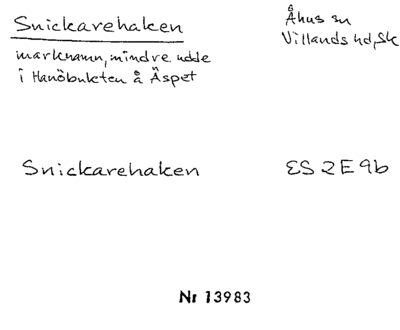 Snickarehaken
Åhus sn
Villands hd, Sk
marknamn, mindre udde
i Hanöbukten å Äspet
Snickarehaken
ES 2E 9b
Nr 13983